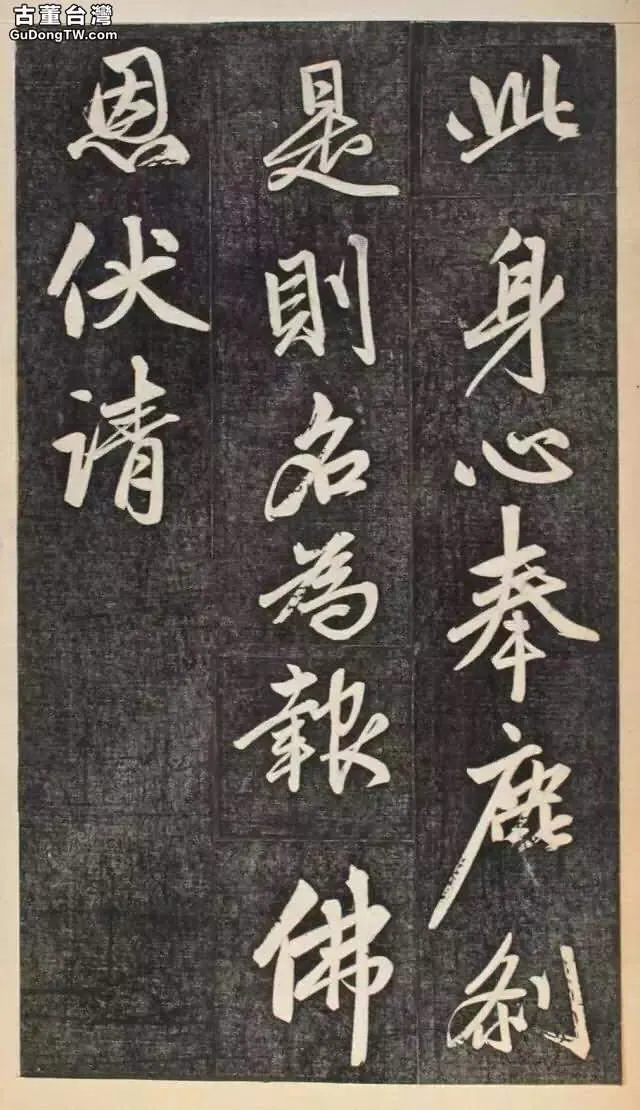 古董台灣
GuDongTW.com
此身心奉塵刹
是則名為報佛
恩伏请